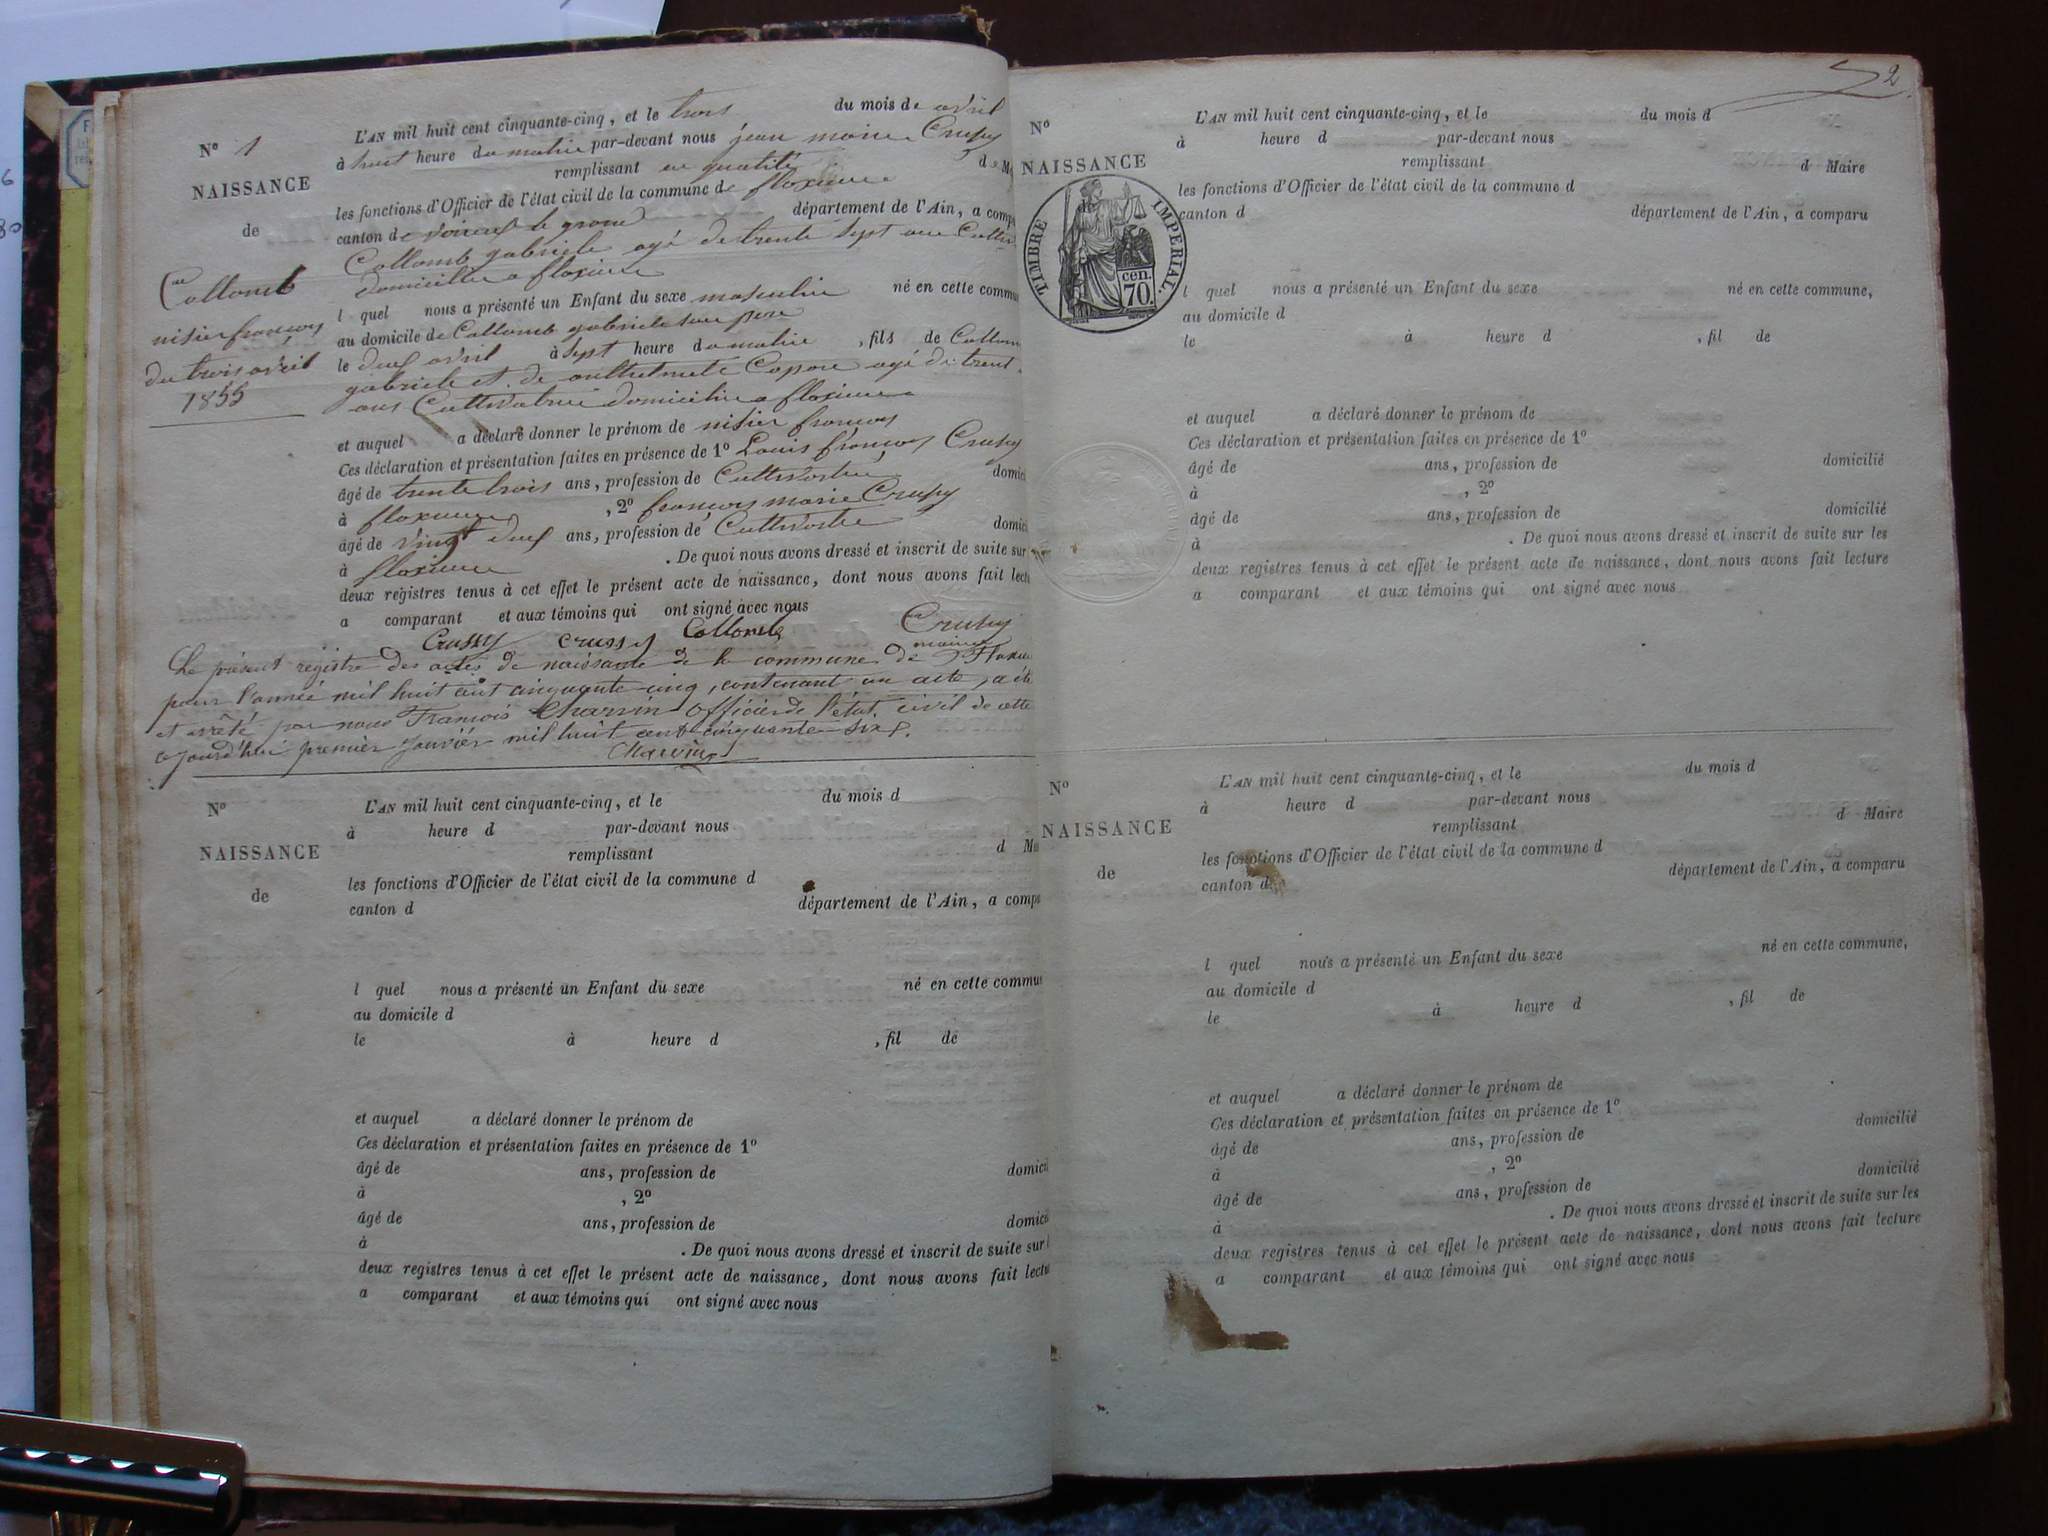 L'AN mil huit cent cinquante-cinq, et le trois du mois de avril
N° 1
à huit heure du matin par-devant nous jean marie Crussy
remplissant en qualité de M
NAISSANCE
les fonctions d'Officier de l'état civil de la commune de floxieux
canton de le grand département de l'Ain, a comp
de
Collomb gabriele agé de trente sept ans Cultiv
domicilie a floxieux
Collomb
nisier françois
du trois avril
1855
l quel nous a présenté un Enfant du sexe masculin né en cette commu
au domicile de Collomb gabriele son pere
le deux avril à sept heure du matin , fils de Collom
gabriele et de Capon agé de trent
ans Cultivatrice domicilie a floxieux
et auquel a déclaré donner le prénom de nisier françois
Ces déclaration et présentation faites en présence de 1° Louis françois Crussy
âgé de trente trois ans, profession de Cultivateur domici
à floxieux , 2° françois marie Crussy
âgé de vingt deux ans, profession de Cultivateur domici
à floxieux . De quoi nous avons dressé et inscrit de suite sur
deux registres tenus à cet effet le présent acte de naissance, dont nous avons fait lectu
a comparant et aux témoins qui ont signé avec nous
Crussy crussy Collomb Crussy
maire
Le présent registre des actes de naissance de la commune de Floxieu
pour l'année mil huit cent cinquante-cinq, contenant un acte, a été
et arrêté par nous François Charvin Officier de l'état civil de cette
ajourd'hui premier janvier mil huit cent cinquante-six.
Charvin
N°
L'AN mil huit cent cinquante-cinq, et le du mois d
à heure d par-devant nous
NAISSANCE
remplissant d Ma
les fonctions d'Officier de l'état civil de la commune d
de
canton d département de l'Ain, a comp
l quel nous a présenté un Enfant du sexe né en cette commu
au domicile d
le à heure d , fil de
et auquel a déclaré donner le prénom de
Ces déclaration et présentation faites en présence de 1°
âgé de ans, profession de domicil
à , 2°
âgé de ans, profession de domici
à . De quoi nous avons dressé et inscrit de suite sur
deux registres tenus à cet effet le présent acte de naissance, dont nous avons fait lectu
a comparant et aux témoins qui ont signé avec nous
2
N°
L'AN mil huit cent cinquante-cinq, et le du mois d
à heure d par-devant nous
NAISSANCE
remplissant d Maire
les fonctions d'Officier de l'état civil de la commune d
canton d département de l'Ain, a comparu
TIMBRE IMPERIAL.
cen.
70.
l quel nous a présenté un Enfant du sexe né en cette commune,
au domicile d
le à heure d , fil de
et auquel a déclaré donner le prénom de
Ces déclaration et présentation faites en présence de 1°
âgé de ans, profession de domicilié
à , 2°
âgé de ans, profession de domicilié
à . De quoi nous avons dressé et inscrit de suite sur les
deux registres tenus à cet effet le présent acte de naissance, dont nous avons fait lecture
a comparant et aux témoins qui ont signé avec nous
N°
L'AN mil huit cent cinquante-cinq, et le du mois d
à heure d par-devant nous
NAISSANCE
remplissant d Maire
les fonctions d'Officier de l'état civil de la commune d
de
canton d département de l'Ain, a comparu
l quel nous a présenté un Enfant du sexe né en cette commune,
au domicile d
le à heure d , fil de
et auquel a déclaré donner le prénom de
Ces déclaration et présentation faites en présence de 1°
âgé de ans, profession de domicilié
à , 2°
âgé de ans, profession de domicilié
à . De quoi nous avons dressé et inscrit de suite sur les
deux registres tenus à cet effet le présent acte de naissance, dont nous avons fait lecture
a comparant et aux témoins qui ont signé avec nous